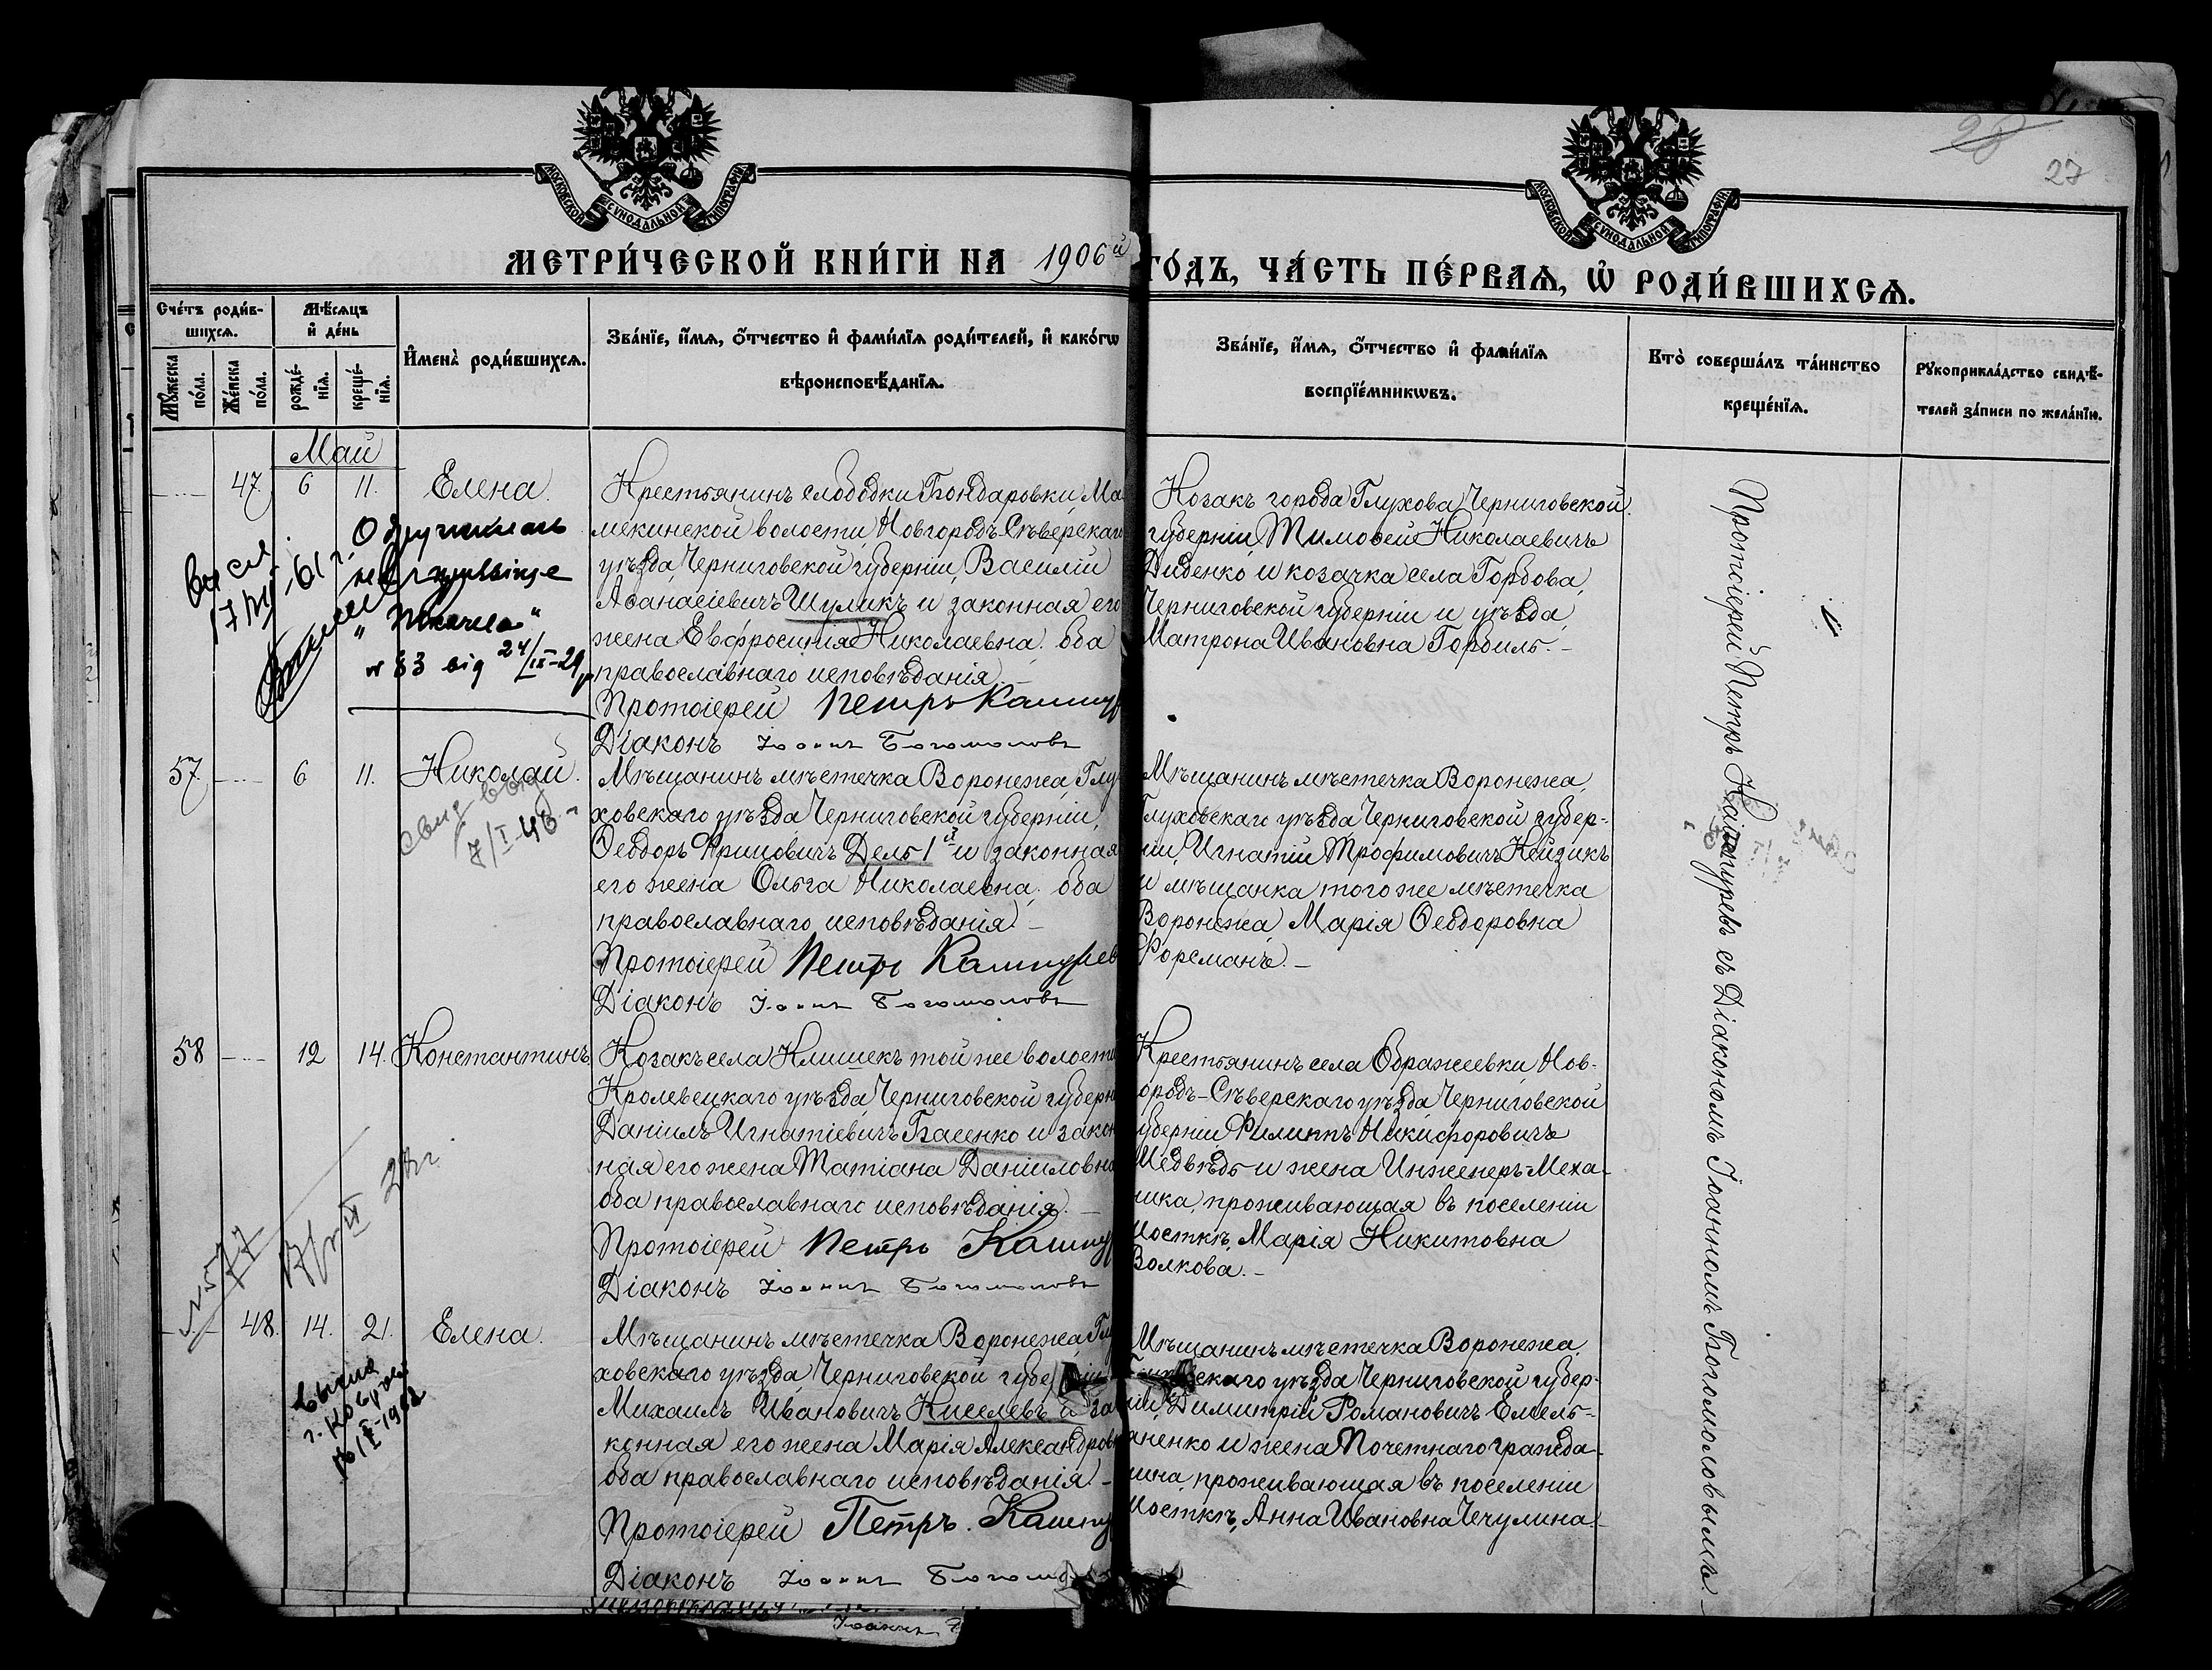 28
27
МОСКОВСКОЙ СѴНОДАЛЬНОЙ ТИПОГРАФІИ.
МОСКОВСКОЙ СѴНОДАЛЬНОЙ ТИПОГРАФІИ.
МЕТРИ́ЧЕСКОЙ КНИ́ГИ НА 1906й
ГО́ДЪ, ЧА́СТЬ ПЕ́РВАѦ, Ѡ҆ РОДИ́ВШИХСѦ.
Сче́тъ роди́в-
шихсѧ.
Мꙋжеска по́ла.
Же́нска по́ла.
Мѣ́сѧцъ
и҆ де́нь
рожде́-
нїѧ.
креще́-
нїѧ.
И҆мена̀ роди́вшихсѧ.
Зва́нїе, и҆́мѧ, ѻ҆́тчество и҆ фами́лїѧ роди́телей, и҆ како́гѡ
вѣроисповѣ́данїѧ.
Зва́нїе, и҆́мѧ, ѻ҆́тчество и҆ фами́лїѧ
воспрїе́мникѡвъ.
Кто̀ соверша́лъ та́инство
креще́нїѧ.
Рꙋкоприкла́дство свидѣ́-
телей за́писи по жела́нїю.
Май
47. 6 11. Елена.
Крестьянинъ слободки Бондаровки, Ма
мекинской волости, Новгородъ-Сѣверскаго
уѣзда, Черниговской губерніи, Василій
Аѳанасіевичъ Шуликъ и законная его
жена Евфросинія Николаевна, оба
православнаго исповѣданія. –
Протоіерей Петръ Кашпур
Діаконъ Іоаннъ Богомоловъ
Козакъ города Глухова, Черниговской
губерніи, Тимоѳей Николаевичъ
Диденко и козачка села Горбова,
Черниговской губерніи и уѣзда,
Матрона Ивановна Горбиль. –
17/VII-61 г.
№ 83 від 24/IX-29 р
57 6 11. Николай.
7/I-48 г
Мѣщанинъ мѣстечка Воронежа, Глу
ховскаго уѣзда Черниговской губерніи,
Ѳеодоръ Дель 1й и законная
его жена Ольга Николаевна, оба
православнаго исповѣданія. –
Протоіерей Петръ Кашпурев
Діаконъ Іоаннъ Богомоловъ
Мѣщанинъ мѣстечка Воронежа,
Глуховскаго уѣзда, Черниговской губер-
ніи, Игнатій Трофимовичъ Кейзикъ
и мѣщанка того же мѣстечка
Воронежа, Марія Ѳеодоровна
Фореманъ. –
58 12 14. Константинъ.
Козакъ села Клишекъ той же волости
Кролевецкаго уѣзда, Черниговской губерн
Даніилъ Игнатіевичъ Басенко и закон
ная его жена Татіана Даніиловна
оба православнаго исповѣданія. –
Протоіерей Петръ Кашпур
Діаконъ Іоаннъ Богомоловъ
Крестьянинъ села Ображеевки, Нов-
ородъ-Сѣверскаго уѣзда, Черниговской
губерніи Филиппъ Никифоровичъ
Медвѣдь и жена Инженеръ-Меха-
ника, проживающая въ поселеніи
Мосткѣ, Марія Никитовна
Волкова. –
№ 577
48. 14. 21. Елена.
Мѣщанинъ мѣстечка Воронежа, Глу
ховскаго уѣзда Черниговской губерніи
Михаилъ Ивановичъ Киселевъ и за
конная его жена Марія Александров
оба православнаго исповѣданія. –
Протоіерей Петръ Кашпу
Діаконъ Іоаннъ Богомо
Мѣщанинъ мѣстечка Воронежа,
Глуховскаго уѣзда Черниговской губер-
ніи, Димитрій Романовичъ Емель-
яненко и жена Почетнаго гражда-
нина, проживающая въ поселеніи
Мосткѣ, Анна Ивановна Чечулина. –
Протоіерей Петръ Кашпуревъ съ Діакономъ Іоанномъ Богомоловымъ. –
Іоаннъ